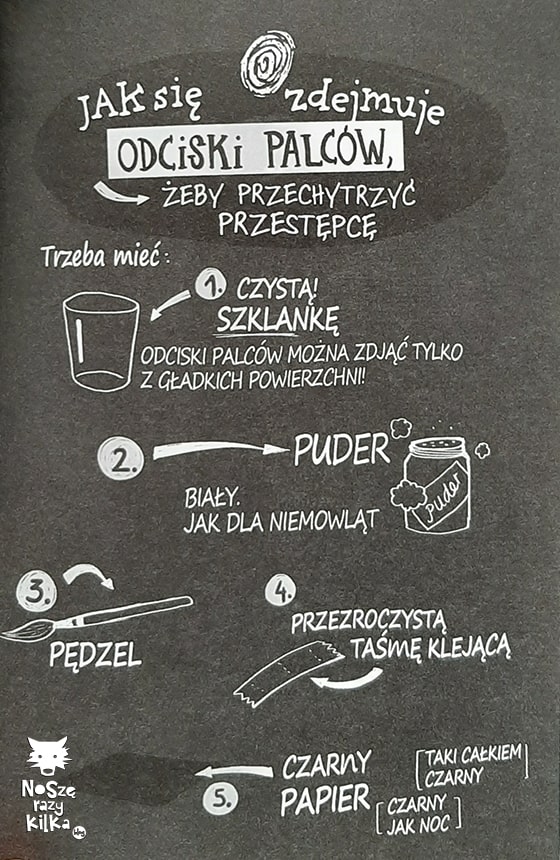 JAK się zdejmuje
ODCISKI PALCÓW,
ŻEBY PRZECHYTRZYĆ
PRZESTĘPCĘ
Trzeba mieć:
1. CZYSTĄ!
SZKLANKĘ
ODCISKI PALCÓW MOŻNA ZDJĄĆ TYLKO
Z GŁADKICH POWIERZCHNI!
2. PUDER
Puder
BIAŁY.
JAK DLA NIEMOWLĄT
3.
PĘDZEL
4.
PRZEZROCZYSTĄ
TAŚMĘ KLEJĄCĄ
5.
CZARNY
PAPIER
[TAKI CAŁKIEM
CZARNY]
[CZARNY
JAK NOC]
NOSZĘ
razy
KiLKa